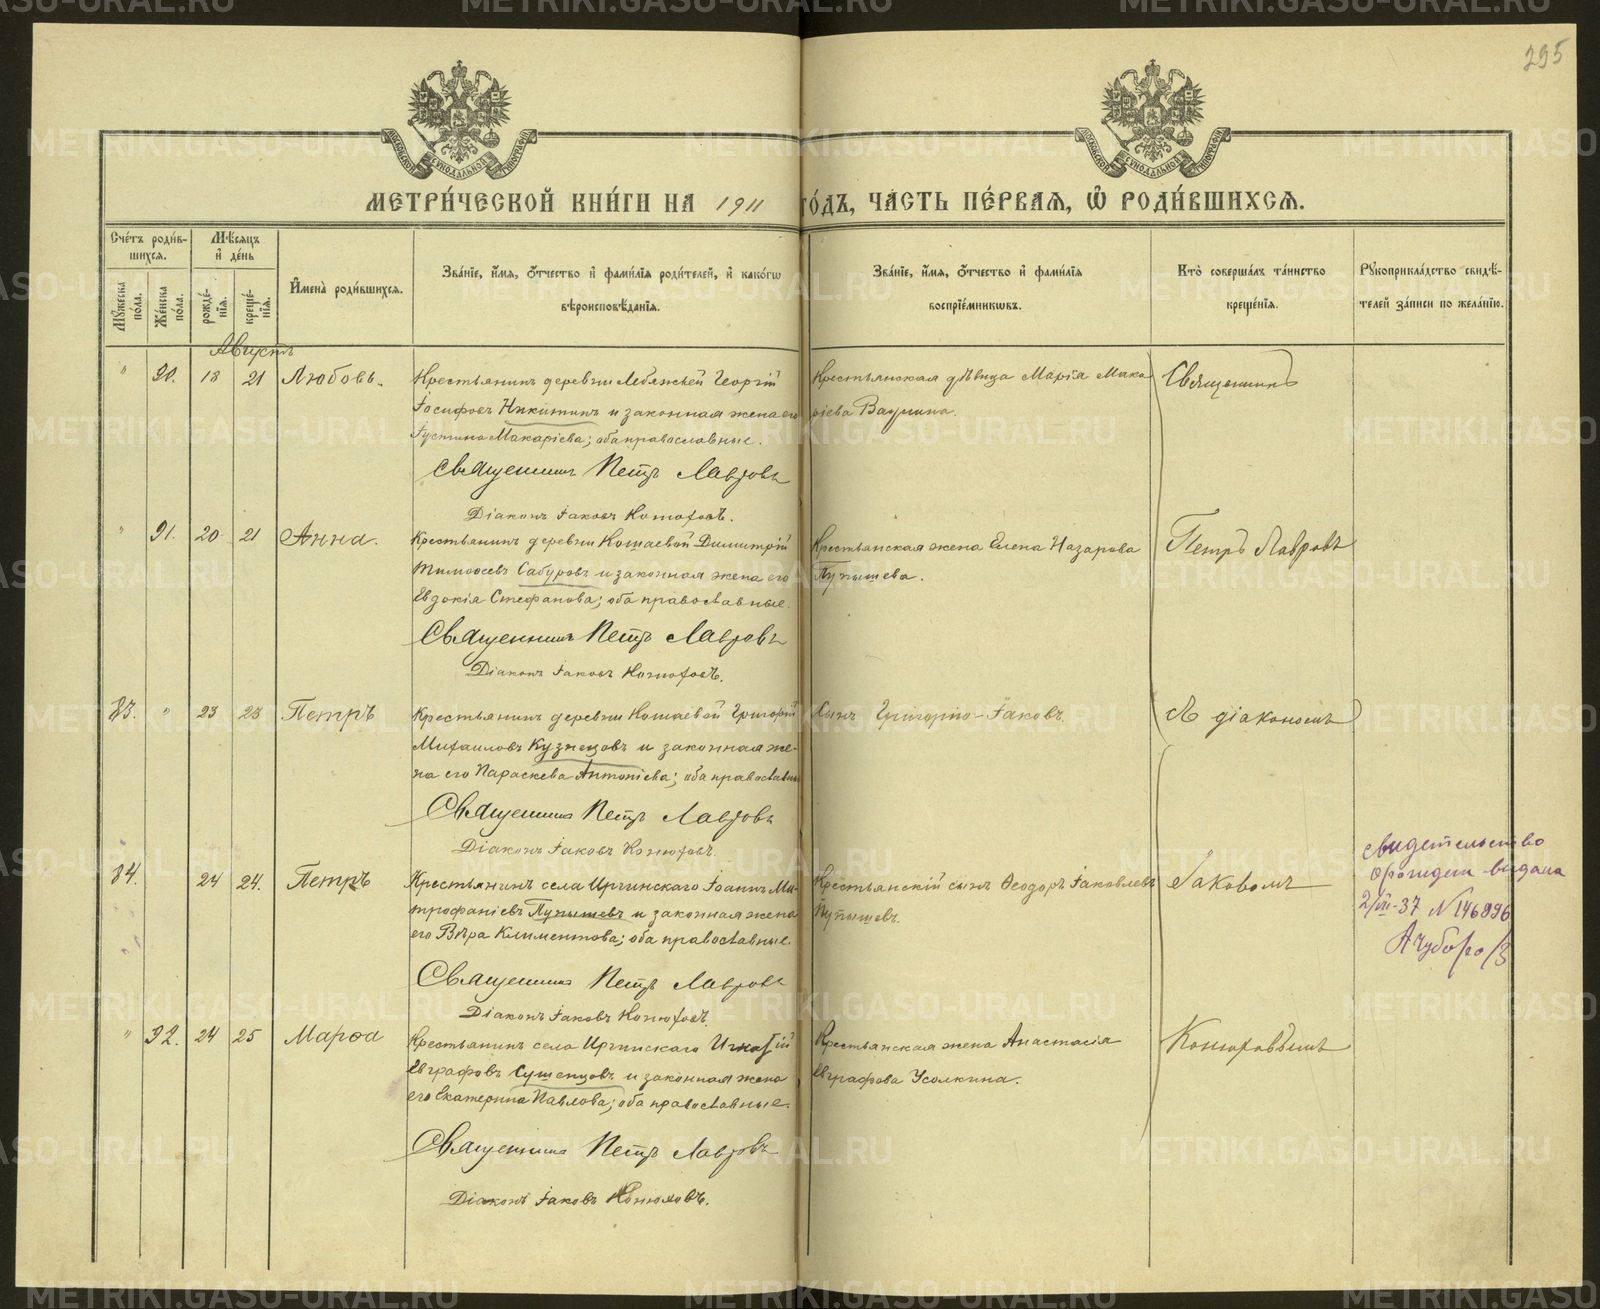 295
МЕТРИ́ЧЕСКОЙ КНИ́ГИ НА 1911 ГО́ДЪ, ЧА́СТЬ ПЕ́РВАЯ, Ѡ҆ РОДИ́ВШИХСѦ.
Сче́тъ роди́в-
шихсѧ.
Мꙋ́жеска по́ла.
Же́нска по́ла.
Мѣ́сѧцъ
и҆ де́нь
рожде́-
нїѧ.
креще́-
нїѧ.
И҆мена̀ роди́вшихсѧ.
Зва́нїе, и҆́мѧ, ѻ҆́тчество и҆ фами́лїѧ роди́телей, и҆ како́гѡ
вѣроисповѣ́данїѧ.
Зва́нїе, и҆́мѧ, ѻ҆́тчество и҆ фами́лїѧ
воспрїе́мникѡвъ.
Кто̀ соверша́лъ та́инство
креще́нїѧ.
Рꙋкоприкла́дство свидѣ́-
телей за́писи по жела́нїю.
Августъ
" 90. 18 21 Любовь.
Крестьянинъ деревни Лебяжьей Георгій
Іосифовъ Никитинъ и законная жена его
Іустина Макаріева; оба православные.
Священникъ Петръ Лавровъ
Діаконъ Іаковъ Конюховъ.
Крестьянская дѣвица Марія Мака-
ріева Ваулина.
Священникъ
" 91. 20 21 Анна.
Крестьянинъ деревни Кошаевой Димитрій
Тимоѳеевъ Сабуровъ и законная жена его
Евдокія Стефанова; оба православные.
Священникъ Петръ Лавровъ
Діаконъ Іаковъ Конюховъ.
Крестьянская жена Елена Назарова
Пупышева.
Петръ Лавровъ
83. " 23 23 Петръ
Крестьянинъ деревни Кошаевой Григорій
Михаиловъ Кузнецовъ и законная же-
на его Параскева Антоніева; оба православные
Священникъ Петръ Лавровъ
Діаконъ Іаковъ Конюховъ.
Сынъ Григорію-Іаковъ.
съ діакономъ
84. 24 24. Петръ
Крестьянинъ села Иргинскаго Іоаннъ Ми-
трофаніевъ Пупышевъ и законная жена
его Вѣра Климентова; оба православные.
Священникъ Петръ Лавровъ
Діаконъ Іаковъ Конюховъ.
Крестьянскій сынъ Ѳеодоръ Іаковлевъ
Пупышевъ.
Іаковомъ
свидетельство
о рожден выдана
2/VII-37 № 146996
" 92. 24 25 Марѳа
Крестьянинъ села Иргинскаго Игнатій
Евграфовъ Сушенцовъ и законная жена
его Екатерина Павлова; оба православные.
Священникъ Петръ Лавровъ
Діаконъ Іаковъ Конюховъ.
Крестьянская жена Анастасія
Евграфова Усолкина.
Конюховымъ
METRIKI.GASO-URAL.RU